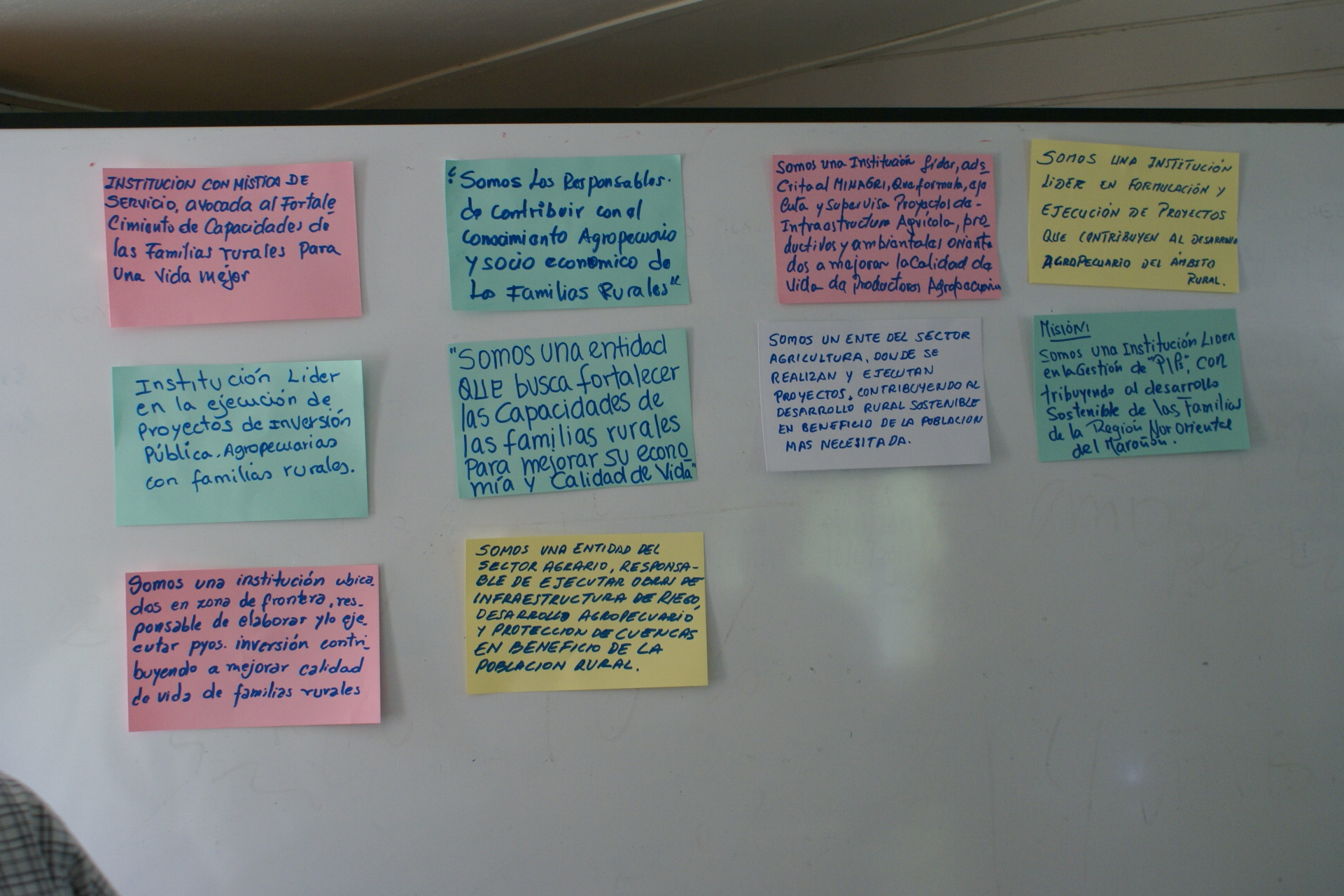 INSTITUCION CON MÍSTICA DE
SERVICIO, avocada al Fortale
Cimiento de Capacidades de
las Familias rurales Para
una Vida mejor
Institución Lider
en la ejecución de
Proyectos de Inversión
Pública. Agropecuarias
con familias rurales.
Somos una institución ubica_
dos en zona de frontera, res_
ponsable de elaborar y/o eje_
cutar pyos. inversión contri_
buyendo a mejorar calidad
de vida de familias rurales
"Somos Los Responsables.
de contribuir con el
conocimiento Agropecuario
y socio economico de
Las Familias Rurales"
"SOMOS una entidad
QUE busca fortalecer
las Capacidades de
las familias rurales
Para mejorar su econo_
mía y Calidad de Vida"
SOMOS UNA ENTIDAD DEL
SECTOR AGRARIO, RESPONSA-
BLE DE EJECUTAR OBRAS DE
INFRAESTRUCTURA DE RIEGO,
DESARROLLO AGROPECUARIO
Y PROTECCION DE CUENCAS
EN BENEFICIO DE LA
POBLACION RURAL.
Somos una Institución líder, ads_
Crita al MINAGRI, Que formula, eje
Cuta y Supervisa Proyectos de-
Infraestructura Agrícola, pro_
ductivos y ambientales orienta
dos a mejorar la Calidad de
Vida de Productores Agropecuarios
SOMOS UN ENTE DEL SECTOR
AGRICULTURA, DONDE SE
REALIZAN Y EJECUTAN
PROYECTOS, CONTRIBUYENDO AL
DESARROLLO RURAL SOSTENIBLE
EN BENEFICIO DE LA POBLACION
MAS NECESITADA.
SOMOS UNA INSTITUCIÓN
LIDER EN FORMULACIÓN Y
EJECUCIÓN DE PROYECTOS
QUE CONTRIBUYEN AL DESARROLLO
AGROPECUARIO DEL ÁMBITO
RURAL.
MISIÓN:
Somos una Institución Lider
en la Gestión de "PIP", con
tribuyendo al desarrollo
Sostenible de las Familias
de la Región Nor Oriental
del Marañón.